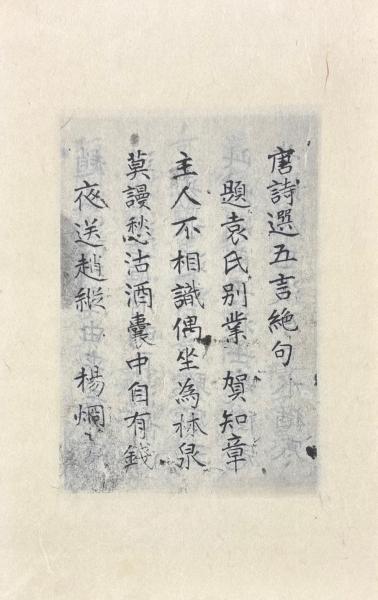 唐詩選五言絶句
題袁氏别業 賀知章
主人不相識偶坐為林泉
莫謾愁沽酒囊中自有錢
夜送趙縱 楊烱